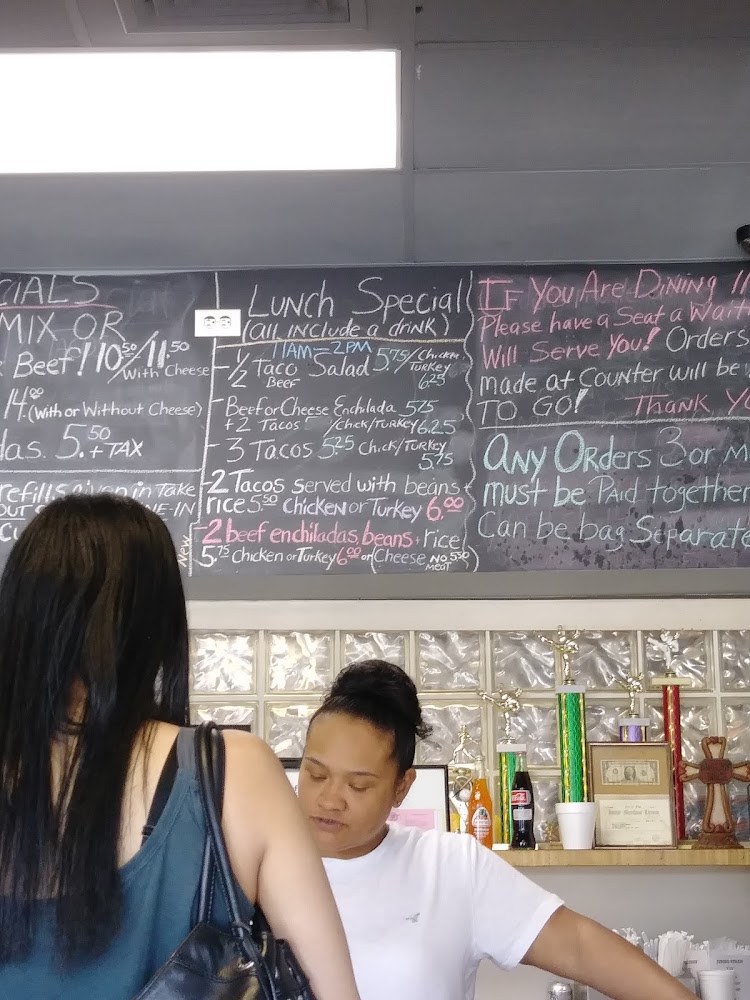 CIALS
MIX OR
Beef! 10.50/11.50
With Cheese
14.00 (With or Without Cheese)
das. 5.50 + TAX
refills given in TAKE
NE-IN
Lunch Special
(all include a drink)
11AM-2PM
1/2 Taco Salad 5.75/Chicken
Beef TURKEY
6.25
Beef or Cheese Enchilada 5.75
+ 2 Tacos /Chick/TURKEY 6.25
- 3 Tacos 5.25 Chick/TURKEY
5.75
- 2 Tacos served with beans +
rice 5.50 Chicken or Turkey 6.00
New - 2 beef enchiladas, beans + rice
5.75 Chicken or Turkey 6.00 or (Cheese NO MEAT 5.50)
IF You Are Dining I
Please have a Seat a Wait
Will Serve You! Orders
made at Counter will be
TO GO! Thank Y
Any Orders 3 or M
must be Paid together
Can be bag Separate